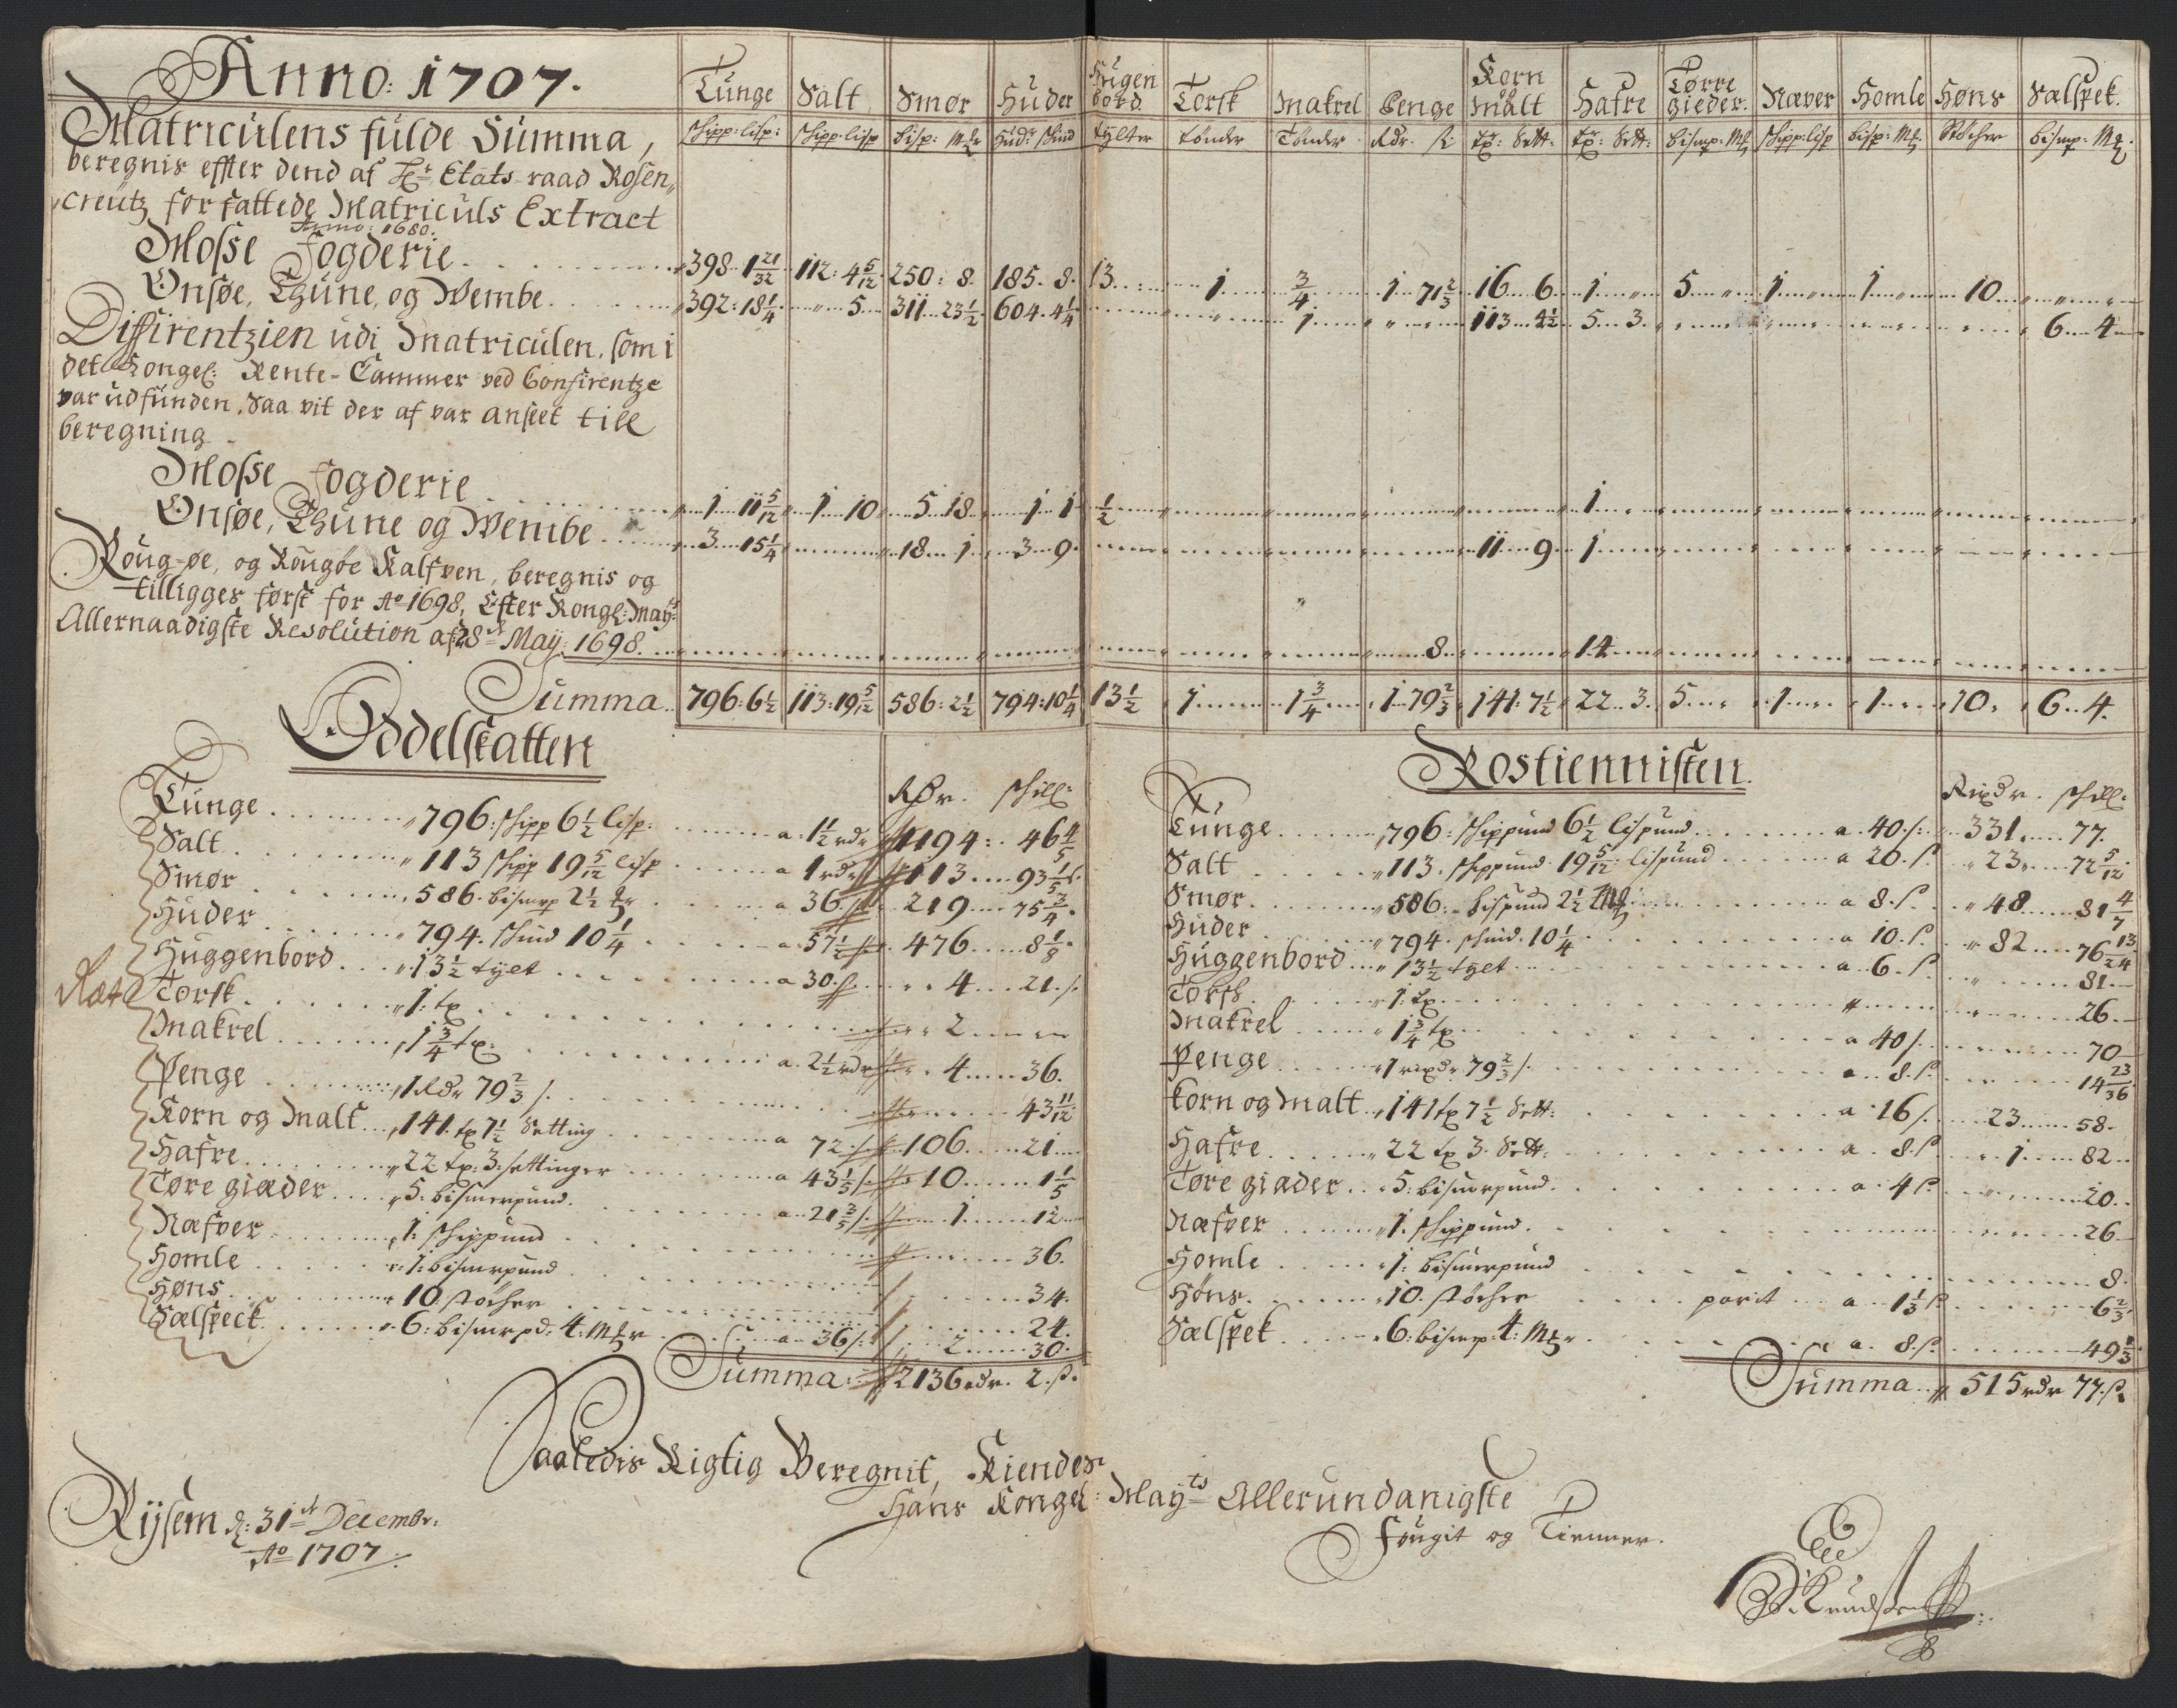 Anno: 1707.
Tunge Salt Smør Huder Hugen bord Torsk Makrel Penge Korn og Malt Hafre Tørre gieder. Næver Homle Høns Sælspek.
schipp: lisp: schipp: lisp bisp: Mkr Hud: skind tylter tønder Tønder Rdr. s: tr: Sett: tr: Sett: bismp: Mk schipp: lisp bisp: Mk Støcher bismp: Mk
Matriculens fulde Summa,
beregnis effter dend af Hr. Etats-raad Rosen„
creutz forfattede Matriculs Extract
Anno: 1680.
Mosse Fogderie 398 1 21/32 112: 4 5/12 250: 8 185. 8. 13 1 3/4 1 71 2/3 16 6 1 „ 5 „ 1 1 10 „ „
Onsøe, Thune, og Wembe 392: 18 1/4 „ 5 311 23 1/2 604. 4 1/4 „ 1 „ „ 113 4 1/2 5 3. 6 4
Diffirentzien udi Matriculen, som i
det Kongel: Rente-Cammer ved Confirentze
var udfunden, Saa vit der af var anseet till
beregning
Mosse Fogderie 1 11 5/12 1 10 5 18 1 1 1/2 1
Onsøe, Thune og Wembe 3 15 1/4 18 1 3 9. 11 9 1
Roug-øe, og Rougøe Kalfven, beregnis og
tilligges først for Ao 1698, Efter Kongl: Mayts
Allernaadigste Resolution af 28de Maij: 1698. 8 14
Summa 796: 6 1/2 113: 19 5/12 586: 2 1/2 794: 10 1/4 13 1/2 1 1 3/4 1 79 2/3 141: 7 1/2 22 3. 5 1 1 10. 6 4.
Oddelskatten
Rdr. skill:
Tunge 796: schipp 6 1/2 lisp: a: 1 1/2 rdr 1194: 46 4/5
Salt 113 schipp 19 5/12 lisp a 1 rdr 113 93 1/5 s.
Smør 586. bismrp 2 1/2 a 36 s 219 75 3/4.
Huder 794. skind 10 1/4 a. 57 1/2 s 476 8 1/8.
Huggenbord 13 1/2 tylt a 30 s. 4 21. s.
Torsk 1: tr 2
Makrel 1 3/4 tr: a 2 1/2 rdr 4 36.
Penge 1 Rdr 79 2/3 s. 43 11/12
Korn og Malt 141. tr 7 1/2 Setting a 72. s 106 21
Hafre 22 tr: 3: settinger a 43 1/5 s. 10 1 1/5
Tøre giæder 5. bismerpund. a 21 3/5 s. 1 12
Næfver 1: schippund 36.
Homle 1: bismerpund 34.
Høns 10 støcher 24.
Sælspeck 6: bismrpd: 4: Mkr a 36 s: 2 30.
Summa 2136 rdr. 2. s.
Rostiennisten.
Rixdr. skill:
Tunge 796: schippund 6 1/2 lispund a. 40. s: 331. 77.
Salt 113. schippund 19 5/12: lispund a 20. s. 23 72 5/12
Smør 586: bispund 2 1/2 Mk a 8. s. 48 81 4/7
Huder 794. skind. 10 1/4 a 10. s. 82 76 13/24
Huggenbord 13 1/2 tylt a. 6. s. 81
Torsk 1: tr 26
Makrel 1 3/4 tr a 40 s. 70
Penge 1 rixdr 79 2/3 s. a 8. s. 14 23/36
Korn og Malt 141 tr 7 1/2 Sett: a 16 s. 23 58
Hafre 22 tr 3. Sett: a. 8. s. 1 82
Tøre giæder 5: bismerpund. a. 4 s. 20
Næfver 1. schippund. 26
Homle 1: bismerpund 8.
Høns. 10. støcher a 1 1/3 s. 6 2/3.
Sælspek 6: bismrp: 4: Mkr a. 8. s. 49 1/3.
Summa 515 rdr 77. s.
Saaledis Rigtig Beregnit, Kiender
Hans Kongel: Mayts Allerundanigste
Fougit og Tienner.
Rijsem d: 31te Decembr:
Ao 1707.
Knudsen